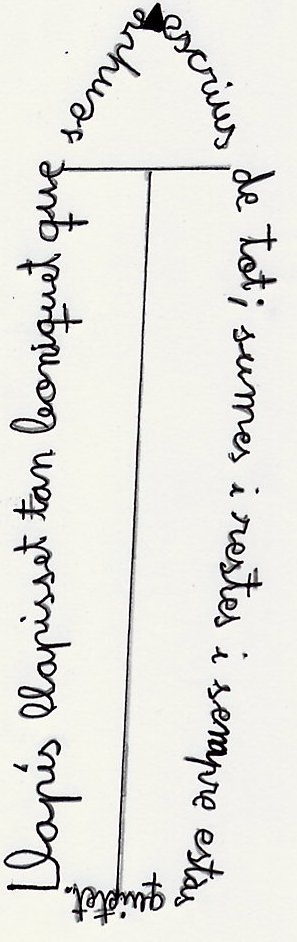 Llapis llapisset tan boniquet que
sempre
escrius
de tot; sumes i restes i sempre estàs
quietet.